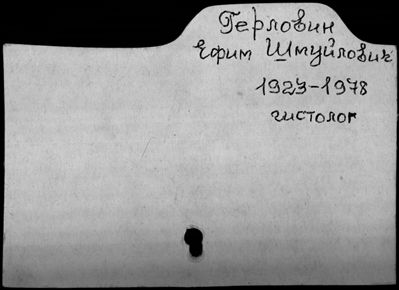 Герловин
Ефим Шмуйлович
1923-1978
гистолог